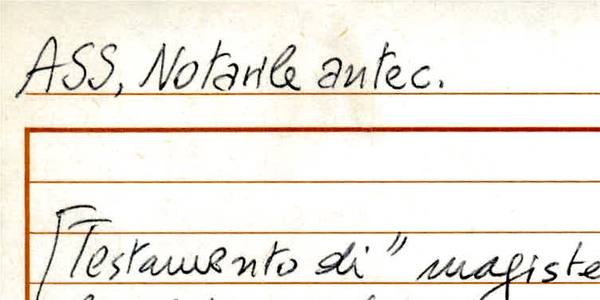 ASS, Notarile antec.
[Testamento di" magiste